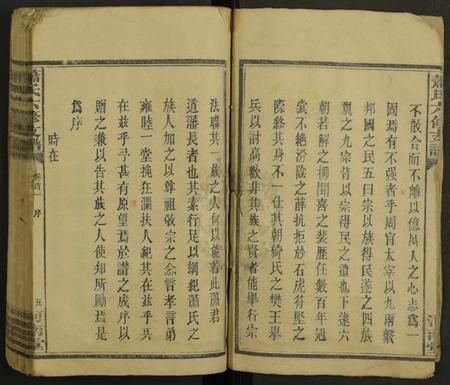 蕭氏六修支譜
不散合而不離以億萬人之心志為一
因焉有不强者乎周官太宰以九兩繫
邦國之民五曰宗以族得民遂之四族
翼之九宗皆以宗得民之遺也下逮六
朝若解之柳聞喜之裴歷任數百年冠
冕不絕汾陰之薛抗拒於石虎苻堅之
際終其身不一仕其朝猗氏之樊王舉
兵以討高歡非其族之賢者能舉行宗
法聯其一族之人何以能若此蕭君
道藩長者也其素行足以綱紀蕭氏之
族人加之以尊祖敬宗之念言孝言弟
雍睦一堂挽狂瀾扶人紀其在兹乎其
在兹乎予甚有原望焉於譜之成序以
贈之兼以告其族之人使知所勵焉是
為序
時在
蕭氏六修支譜
卷首一
序
五
河南堂